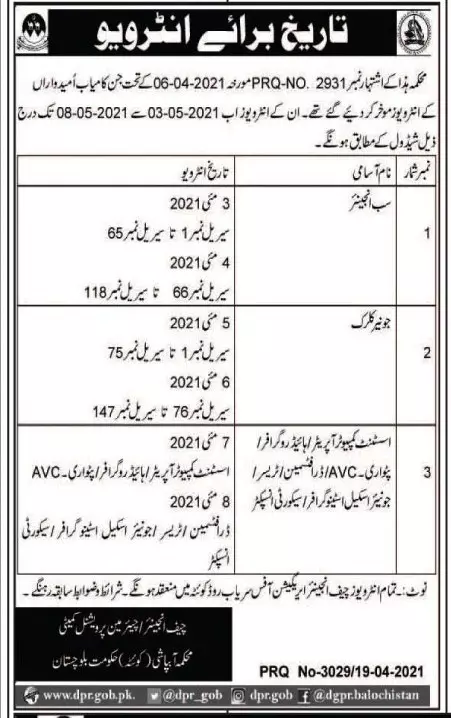 تاریخ برائے انٹرویو
محکمہ ہذا کے اشتہار نمبر PRQ-NO. 2931 مورخہ 2021-04-06 کے تحت جن کامیاب اُمیدواران
کے انٹرویوز مؤخر کر دیئے گئے تھے۔ ان کے انٹرویوز اب 2021-05-03 سے 2021-05-08 تک درج
ذیل شیڈول کے مطابق ہونگے۔
نمبر شمار نام آسامی تاریخ انٹرویو
1 سب انجینئر
3 مئی 2021
سیریل نمبر 1 تا سیریل نمبر 65
4 مئی 2021
سیریل نمبر 66 تا سیریل نمبر 118
2 جونیئر کلرک
5 مئی 2021
سیریل نمبر 1 تا سیریل نمبر 75
6 مئی 2021
سیریل نمبر 76 تا سیریل نمبر 147
3
اسسٹنٹ کمپیوٹر آپریٹر/ہائیڈروگرافر/
پٹواری۔AVC/ڈرافٹسمین/ٹریسر/
جونیئر اسکیل اسٹینوگرافر/سیکورٹی انسپکٹر
7 مئی 2021
اسسٹنٹ کمپیوٹر آپریٹر/ہائیڈروگرافر/پٹواری۔AVC
8 مئی 2021
ڈرافٹسمین/ٹریسر/جونیئر اسکیل اسٹینوگرافر/سیکورٹی
انسپکٹر
نوٹ:۔تمام انٹرویوز چیف انجینئر ایریگیشن آفس سریاب روڈ کوئٹہ میں منعقد ہونگے۔ شرائط و ضوابط سابقہ رہینگے۔
چیف انجینئر/چیئرمین پرویشنل کمیٹی
محکمہ آبپاشی (کوئٹہ) حکومت بلوچستان
PRQ No-3029/19-04-2021
www.dpr.gob.pk. @dpr_gob dpr.gob @dgpr.balochistan